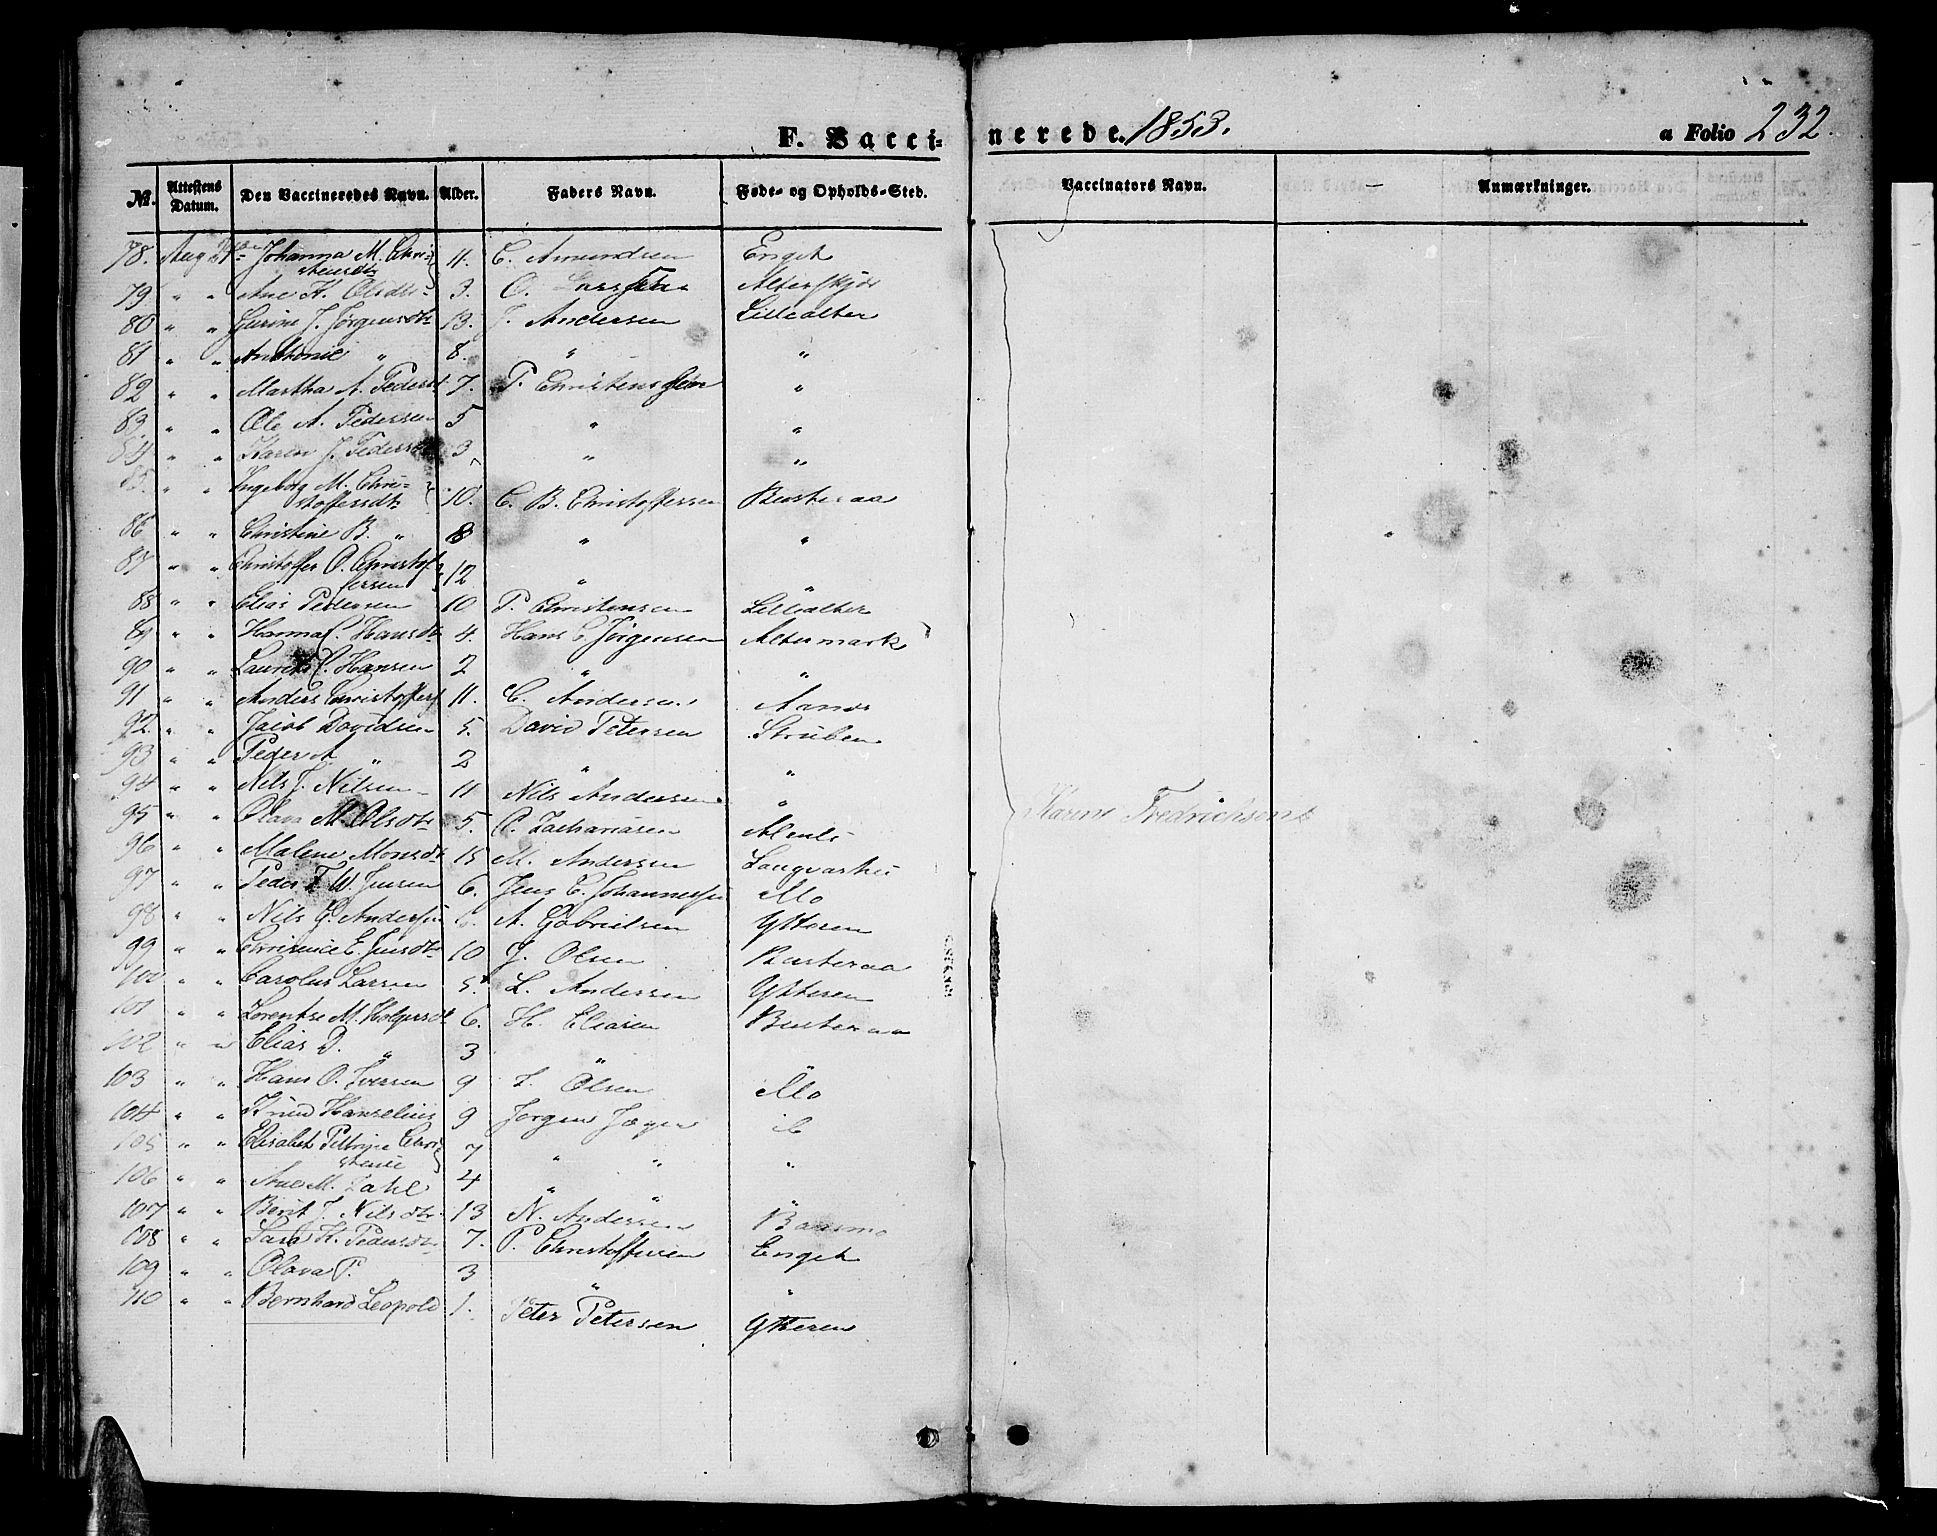 F. Vaccinerede. 1853. a Folio 232.
№. Attestens Datum. Den Vaccineredes Navn. Alder. Faders Navn. Føde- og Opholds-Sted. Vaccinators Navn. Anmærkninger.
78. Aug Johanna M. Chri-stensdtr 11. C. Amundsen Enget
79 " " Ane H. Olsdtr 3. O. Larssen
80 " " J. Jørgensdtr 13. J. Andersen Lillealter
81 " " Anthonie " 8. " "
82 " " Martha A. Pedersdt 7. P. Christenssen "
83. " " Ole A. Pedersen 5 " "
84 " " Karen J. Pedersdt 3 " "
85. " " Ingeborg M. Chri-stoffersdtr 10. C. B. Christoffersen Busteraa
86 " " Christine B. " 8 " "
87 " " Christoffer O. Christoffersen 12 " "
88 " " Elias Pedersen 10 P. Christensen Lillealter
89 " " Hanna C. Hansdtr 4. Hans C. Jørgensen Altermark
90 " " Laurits C. Hansen 2 " "
91 " " Anders Christoffers 11. C. Andersen
92. " " Jacob Davidsen 5. David Petersen Struben
93 " " Peder A " 2 " "
94 " " Nils J. Nilsen 11 Nils Andersen "
95 " " Olava M. Olsdtr 5. O. Zachariasen
96 " " Malene Monsdt 15 M. Andersen
97 " " Peder T. W. Jensen 6. Jens C. Johannessen Mo
98 " " Nils G. Andersen 6. A. Gabrielsen Ytteren
99 " " E. Jensdtr 10 J. Olsen Busteraa
100 " " Carolus Larsen 5. L. Andersen Ytteren
101 " " Lorentse M. Holgersdt 6. H. Eliasen Busteraa
102 " " Elias D. " 3 " "
103 " " Hans O. Iversen 9 I. Olsen Mo
104 " " Knud Hanselius 9 Jørgen Jæger
105 " " Elisabet Petrine Chri-stense 7 " " "
106 " " Ane M. Dahl 4 " "
107 " " Berit J. Nilsdtr 13 N. Andersen Baasmo
108 " " Sara H. Pedersdtr 7. P. Christoffersen Enget
109 " " Olava P. " 3 " "
110 " " Bernhard Leopold 1. Peter Petersen Ytteren
Karine Fredrichsen